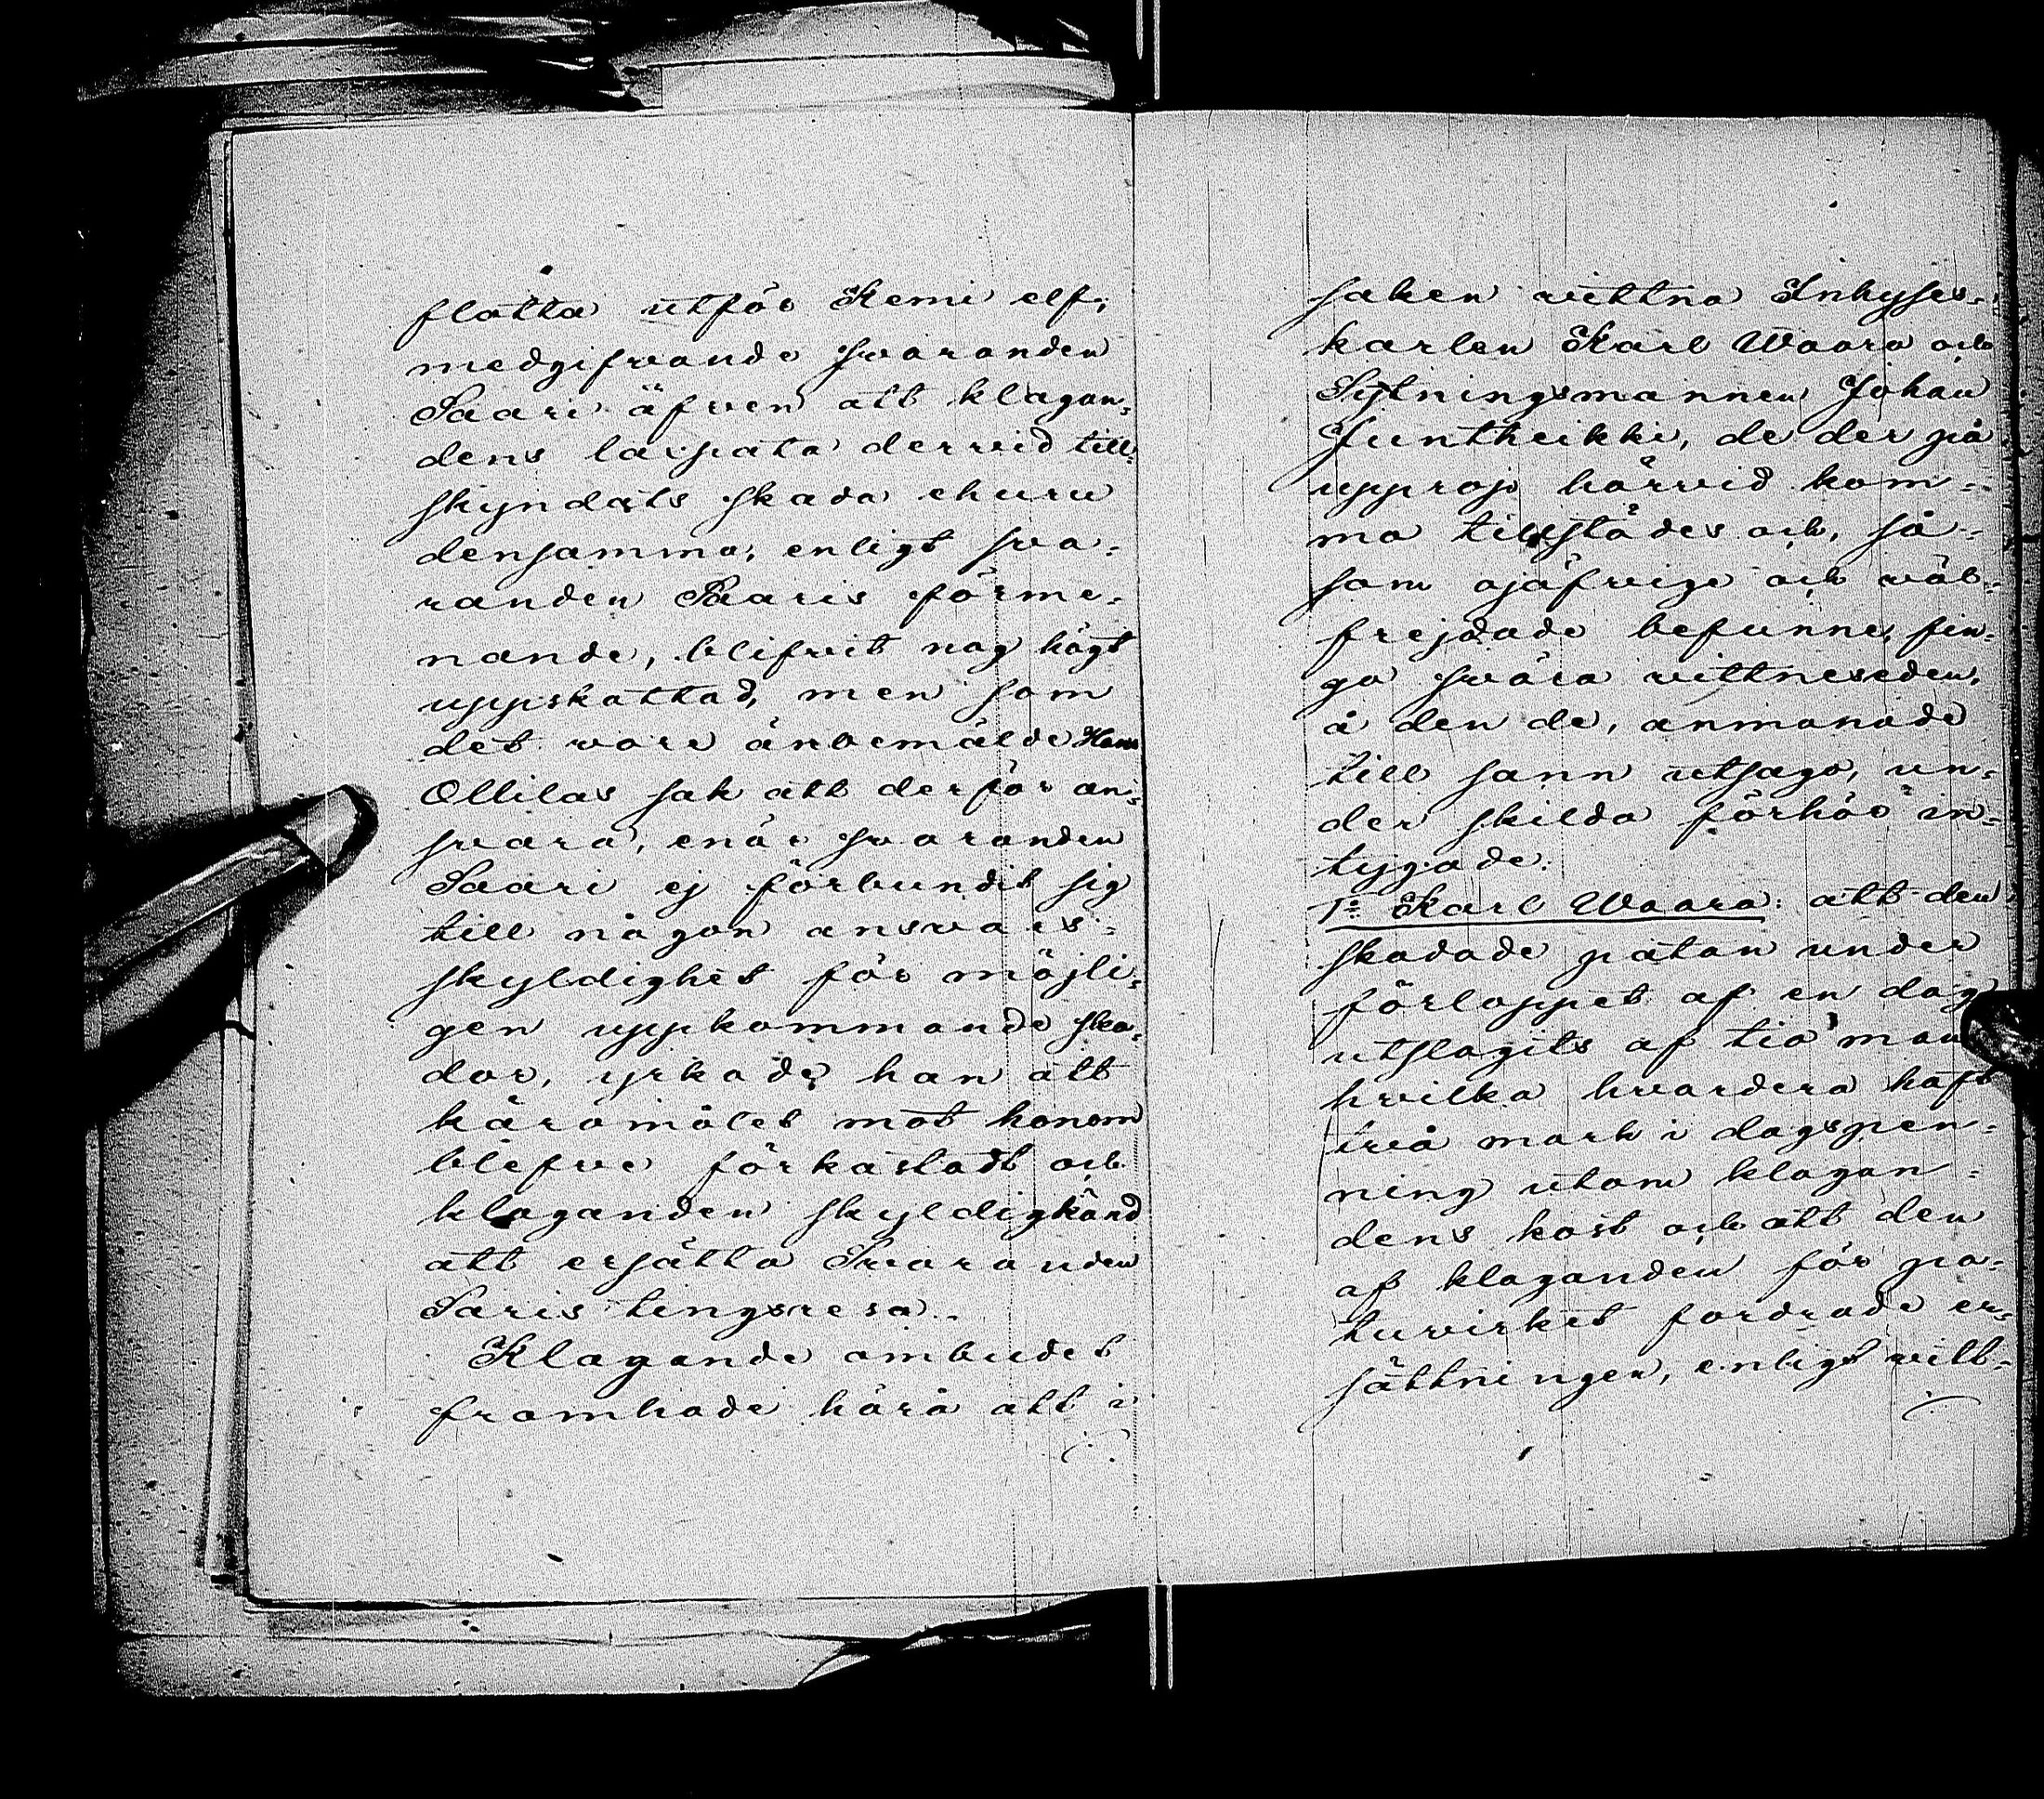 flotta utför Kemi elf;
medgifvande svaranden
Saari äfven att klagan-
dens laxpata dervid till-
skyndats skada ehuru
densamma, enligt sva-
randen Saaris förme-
nande, blifvit nog högt
uppskattad, men som
det vore änbemälde Hans
Ollilas sak att derför an-
svara, enär svaranden
Saari ej förbundit sig
till någon ansvars-
skyldighet för möjli-
gen uppkommande ska-
dor, yrkade han att
käromålet mot honom
blefve förkastadt och
klaganden skyldigkänd
att ersätta Svaranden
Saris tingsresa.
Klagande ombudet
framhade härå att i
saken vittna Inhyses-
karlen Karl Waara och
Sytningsmannen Johan
Juntheikki, de der på
upprop härvid kom-
ma tillstädes och, så-
som ojäfvige och väl-
frejdade befunne, fin-
go svära vittneseden,
å den de, anmanade
till sann utsago, un-
der skilda förhör in-
tygade:
1o Karl Waara: att den
skadade patan under
förloppet af en dag
utslagits af tio man
hvilka hvardera haft
två mark i dagspen-
ning utom klagan-
dens kost och att den
af klaganden för pa-
tuvirket fordrade er-
sättningen, enligt vitt-